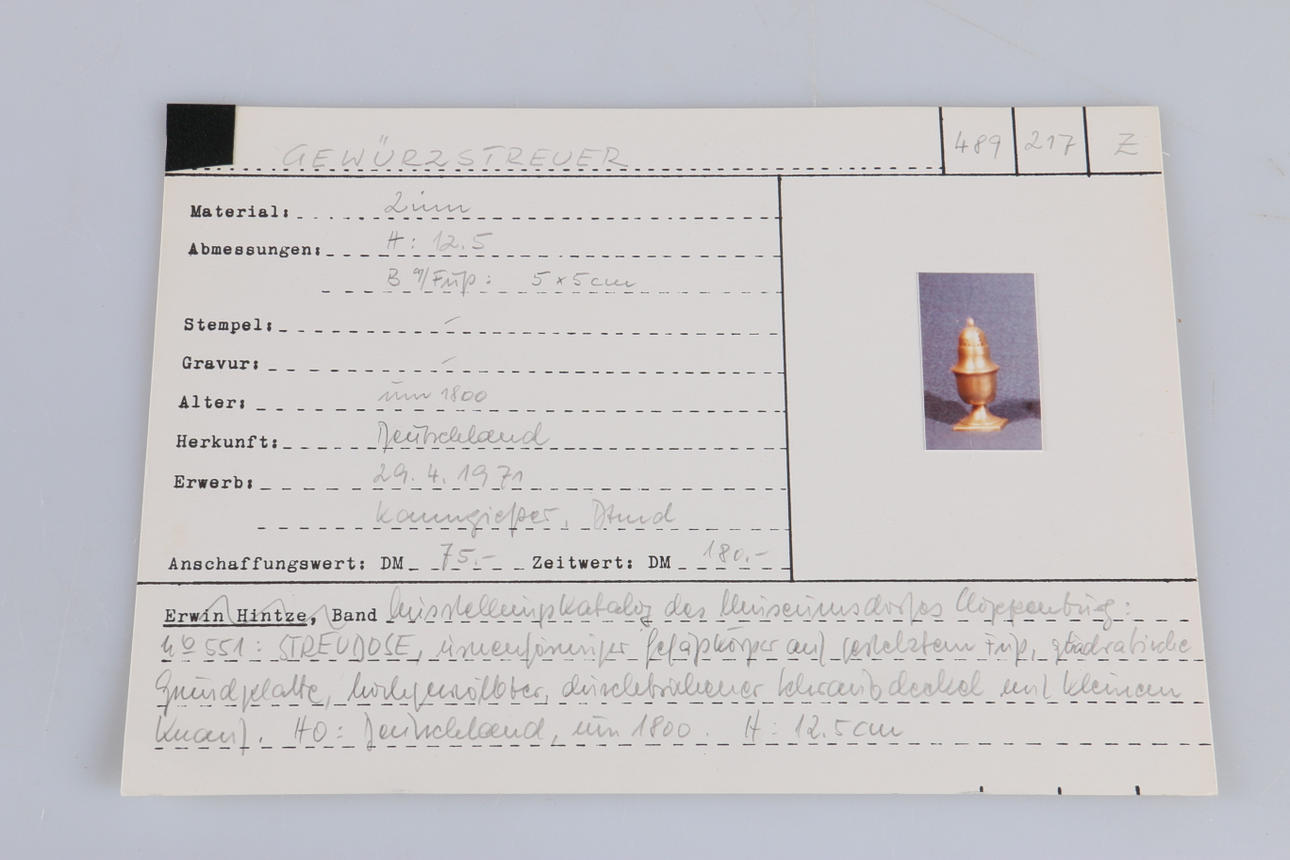 GEWÜRZSTREUER 489 217 Z
Material: Zinn
Abmessungen: H: 12.5
B q/Fuß: 5 x 5 cm
Stempel: -
Gravur: -
Alter: um 1800
Herkunft: Deutschland
Erwerb: 29.4.1971
Kanngießer, Dtmd
Anschaffungswert: DM 75.- Zeitwert: DM 180.-
Erwin Hintze, Band Ausstellungskatalog des Museumsdorfes Cloppenburg:
No 551: STREUDOSE, urnenförmiger Gefäßkörper auf gestelztem Fuß, quadratische
Grundplatte, hochgewölbter, durchbrochener Schraubdeckel mit kleinem
Knauf. HO: Deutschland, um 1800. H: 12.5 cm